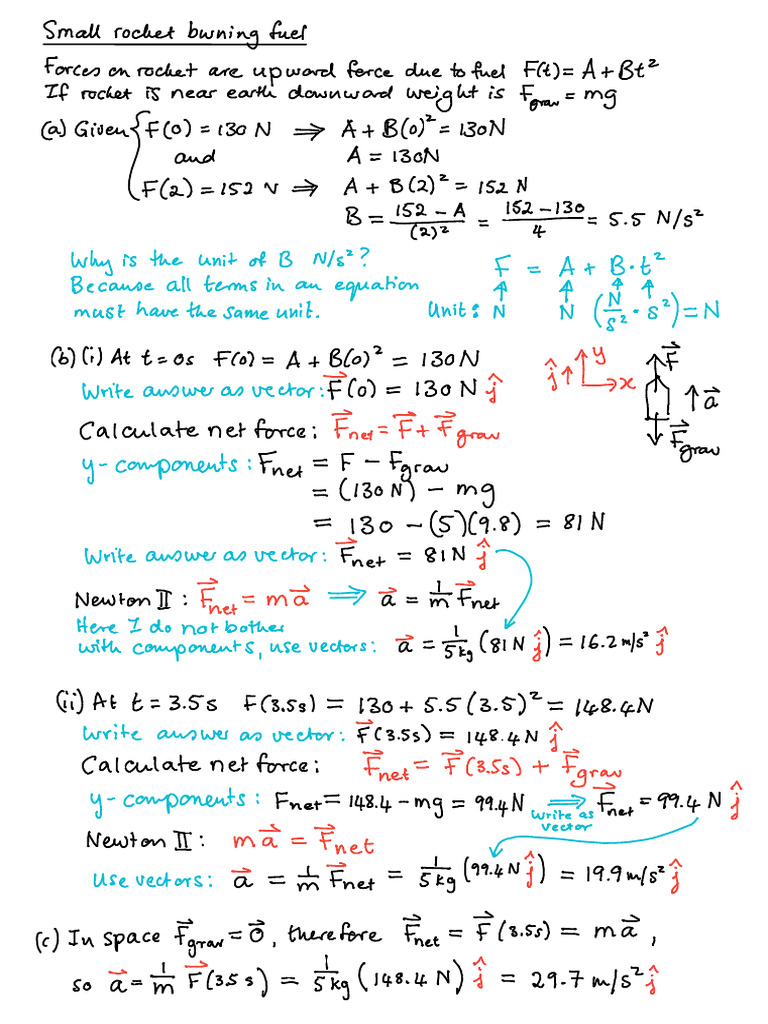 Small rocket burning fuel
Forces on rocket are upward force due to fuel F(t) = A + Bt²
If rocket is near earth downward weight is F_grav = mg
(a) Given { F(0) = 130 N ⟹ A + B(0)² = 130N
and A = 130N
F(2) = 152 N ⟹ A + B(2)² = 152 N
B = (152 - A)/(2)² = (152 - 130)/4 = 5.5 N/s²
Why is the unit of B N/s²? F = A + B·t²
Because all terms in an equation
must have the same unit. Unit: N N (N/s² · s²) = N
(b) (i) At t = 0s F(0) = A + B(0)² = 130N ĵ y x F⃗ a⃗ F⃗_grav
Write answer as vector: F⃗(0) = 130N ĵ
Calculate net force: F⃗_net = F⃗ + F⃗_grav
y-components: F_net = F - F_grav
= (130 N) - mg
= 130 - (5)(9.8) = 81 N
Write answer as vector: F⃗_net = 81N ĵ
Newton II: F⃗_net = ma⃗ ⟹ a⃗ = 1/m F⃗_net
Here I do not bother
with components, use vectors: a⃗ = 1/5kg (81 N ĵ) = 16.2 m/s² ĵ
(ii) At t = 3.5s F(3.5s) = 130 + 5.5(3.5)² = 148.4N
Write answer as vector: F⃗(3.5s) = 148.4N ĵ
Calculate net force: F⃗_net = F⃗(3.5s) + F⃗_grav
y-components: F_net = 148.4 - mg = 99.4N ⟹ F⃗_net = 99.4 N ĵ
write as
vector
Newton II: ma⃗ = F⃗_net
Use vectors: a⃗ = 1/m F⃗_net = 1/5kg (99.4N ĵ) = 19.9 m/s² ĵ
(c) In space F⃗_grav = 0⃗, therefore F⃗_net = F⃗(3.5s) = ma⃗,
so a⃗ = 1/m F⃗(3.5 s) = 1/5kg (148.4 N) ĵ = 29.7 m/s² ĵ